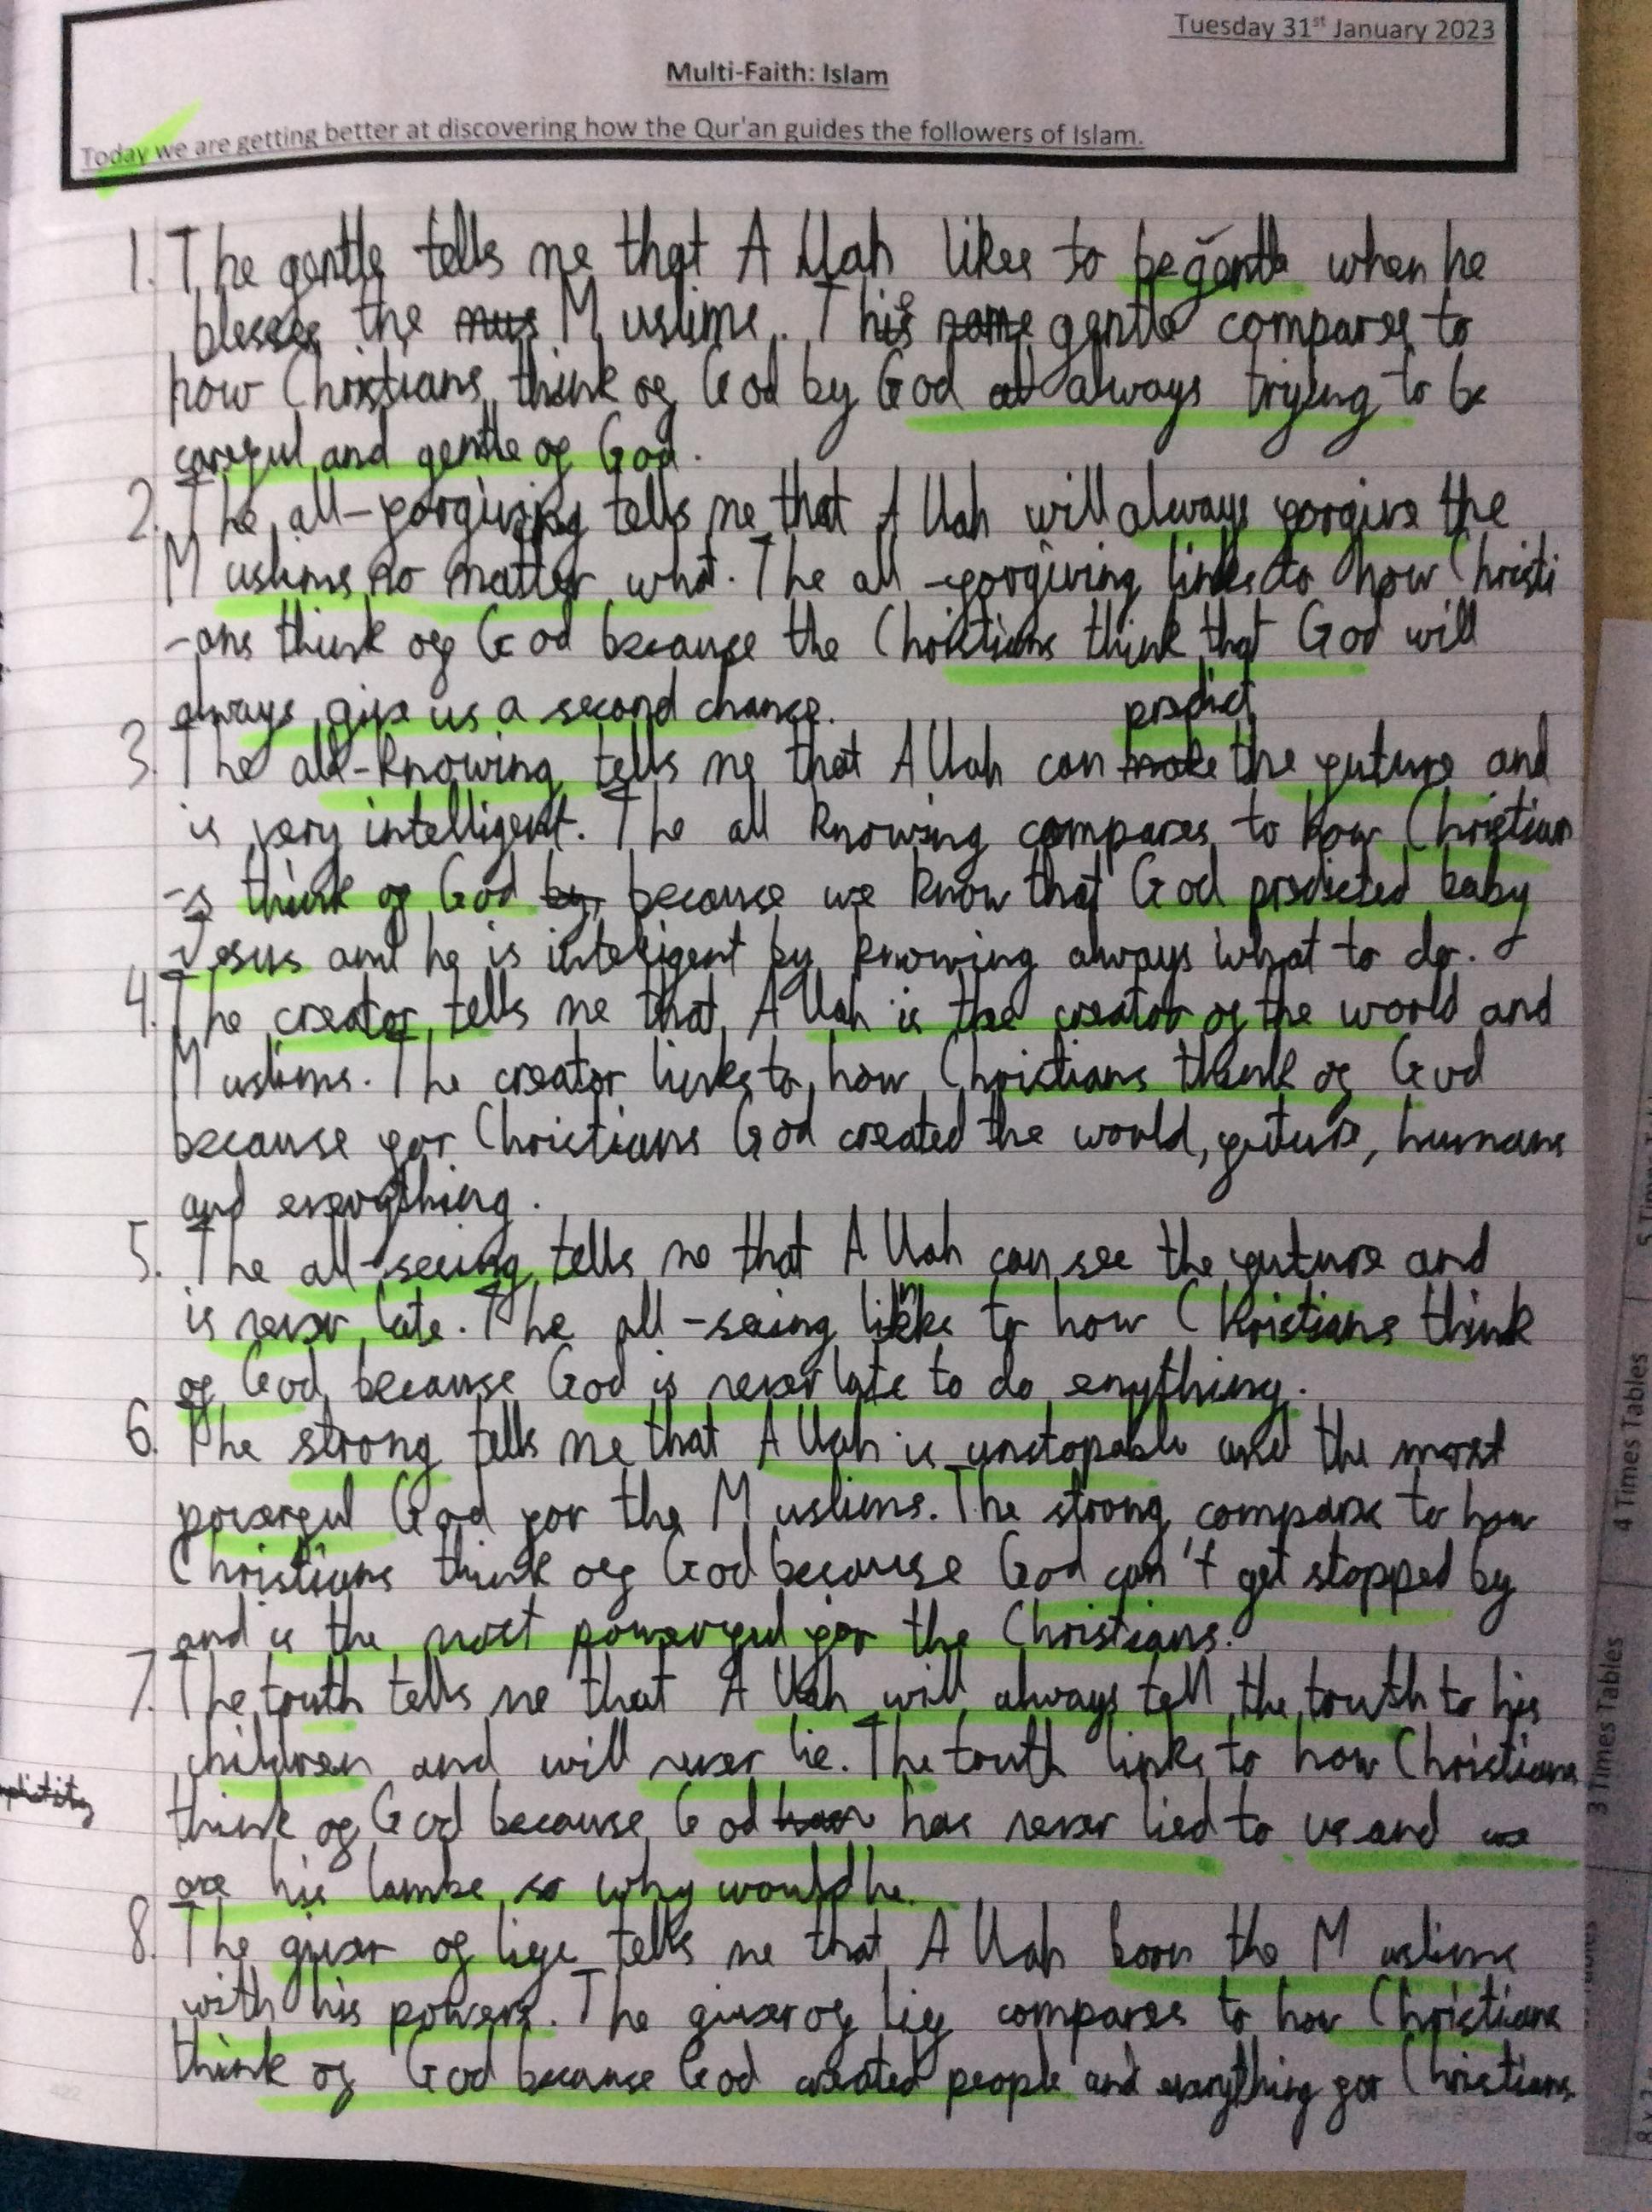 Tuesday 31st January 2023
Multi-Faith: Islam
Today we are getting better at discovering how the Qur'an guides the followers of Islam.
1. The gentle tells me that Allah likes to be gentle when he
blesses the mus Muslims. The name gentle compares to
how Christians think of God by God at always trying to be
careful and gentle of God.
2. The all-forgiving tells me that Allah will always forgive the
Muslims no matter what. The all-forgiving links to how Christi
-ans think of God because the Christians think that God will
always give us a second chance.
predict
3. The all-knowing tells me that Allah can make the future and
is very intelligent. The all knowing compares to how Christian
-s think of God by because we know that God predicted baby
Jesus and he is inteligent by knowing always what to do.
4. The creator tells me that Allah is the creator of the world and
Muslims. The creator links to how Christians think of God
because for Christians God created the world, future, humans
and everything.
5. The all-seeing tells me that Allah can see the future and
is never late. The all-seeing links to how Christians think
of God because God is never late to do enything.
6. The strong tells me that Allah is unstopable and the most
powerful God for the Muslims. The strong compare to how
Christians think of God because God can't get stopped by
and is the most powerful for the Christians.
7. The truth tells me that Allah will always tell the truth to his
children and will never lie. The truth links to how Christians
think of God because God has never lied to us and we
are his lambs so why would he.
8. The giver of life tells me that Allah born the Muslims
with his powers. The giver of life compares to how Christians
think of God because God created people and everything for Christians
3 Times Tables
4 Times Tables